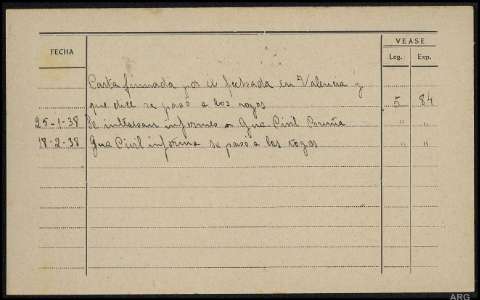 VEASE
FECHA
Leg. Exp.
Carta firmada por él fechada en Valencia y
que dice se pasó a los rojos 5 84
25-1-38 Se interesan informes a Gua Civil " "
18-2-38 Gua Civil informa se pasó a los rojos " "
ARG